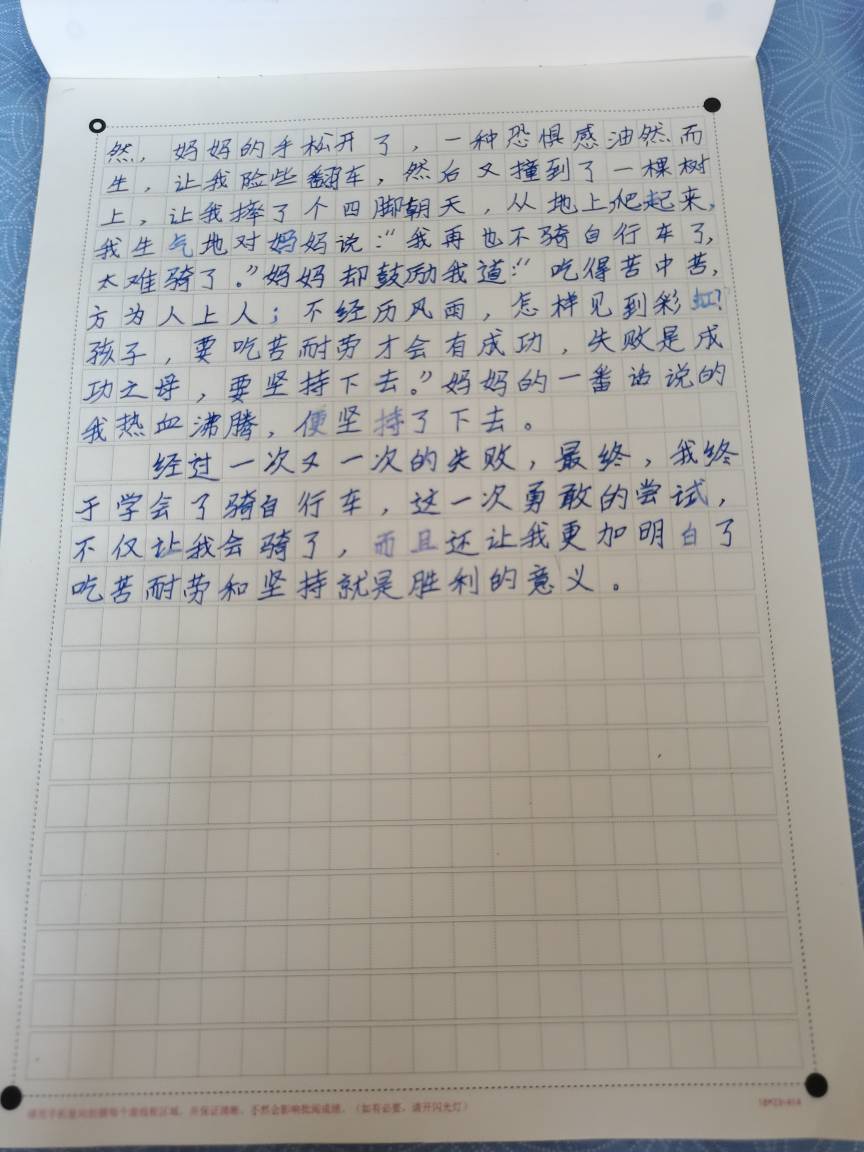 然，妈妈的手松开了，一种恐惧感油然而
生，让我险些翻车，然后又撞到了一棵树
上，让我摔了个四脚朝天，从地上爬起来，
我生气地对妈妈说：“我再也不骑自行车了，
太难骑了。”妈妈却鼓励我道：“吃得苦中苦，
方为人上人；不经历风雨，怎样见到彩虹？
孩子，要吃苦耐劳才会有成功，失败是成
功之母，要坚持下去。”妈妈的一番话说的
我热血沸腾，便坚持了下去。
经过一次又一次的失败，最终，我终
于学会了骑自行车，这一次勇敢的尝试，
不仅让我会骑了，而且还让我更加明白了
吃苦耐劳和坚持就是胜利的意义。